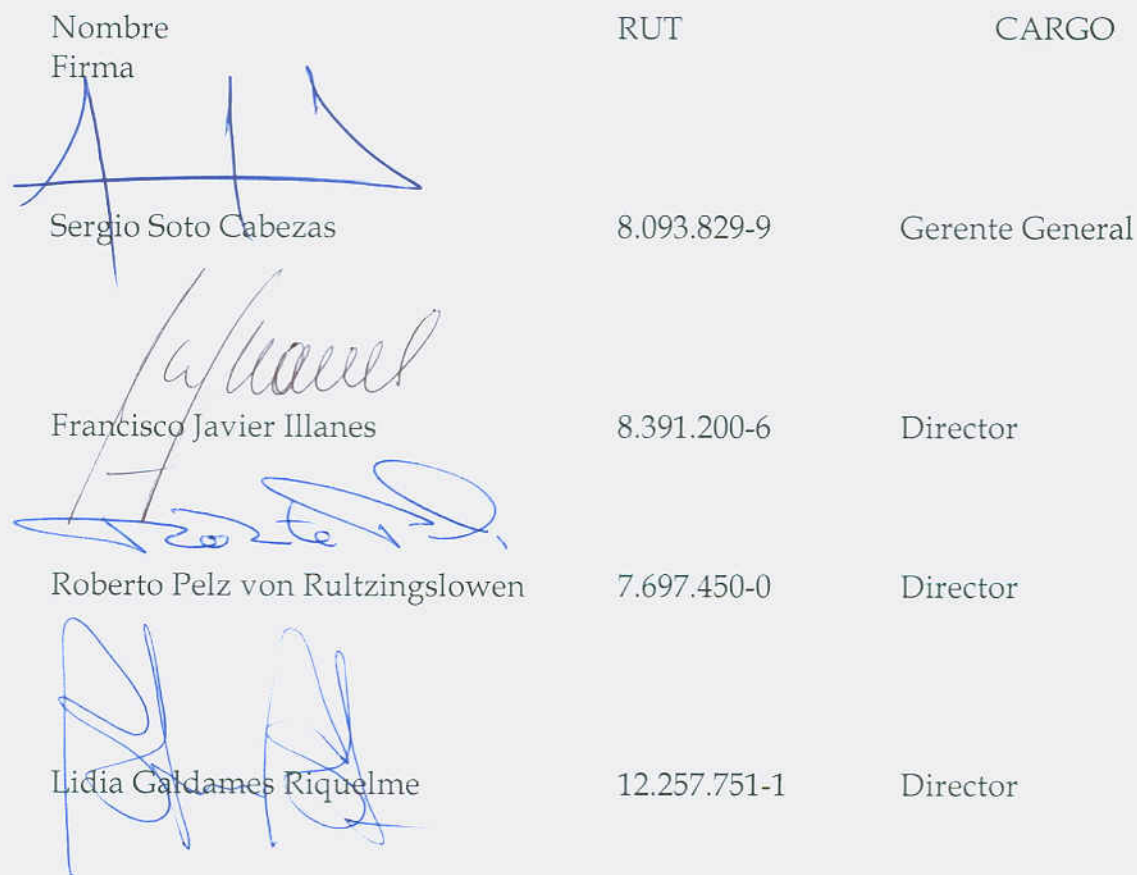 Nombre RUT CARGO
Firma
Sergio Soto Cabezas 8.093.829-9 Gerente General
Francisco Javier Illanes 8.391.200-6 Director
Roberto Pelz von Rultzingslowen 7.697.450-0 Director
Lidia Galdames Riquelme 12.257.751-1 Director